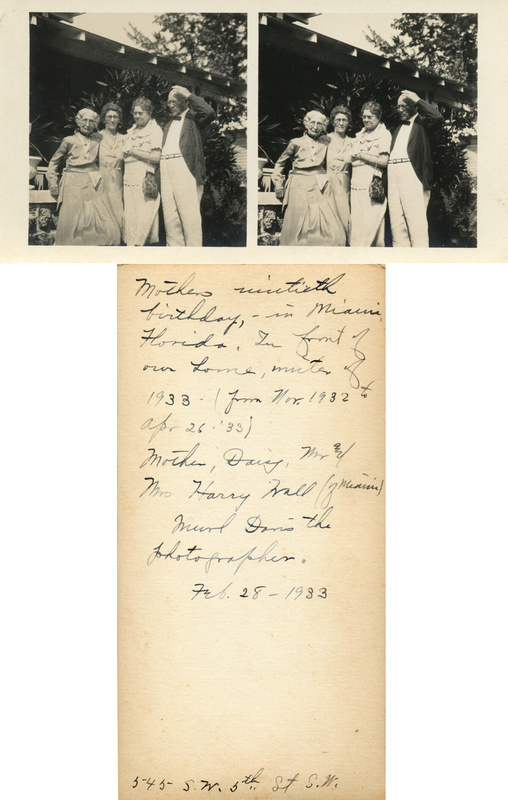 Mothers nintieth
birthday, - in Miami,
Florida. In front of
our home, winter of
1933 - (from Nov. 1932 to
Apr 26 - '33)
Mother, Daisy, Mr &
Mrs Harry Wall (of Miami)
Murl Davis the
photographer.
Feb. 28 - 1933
545 S.W. 5th St S.W.